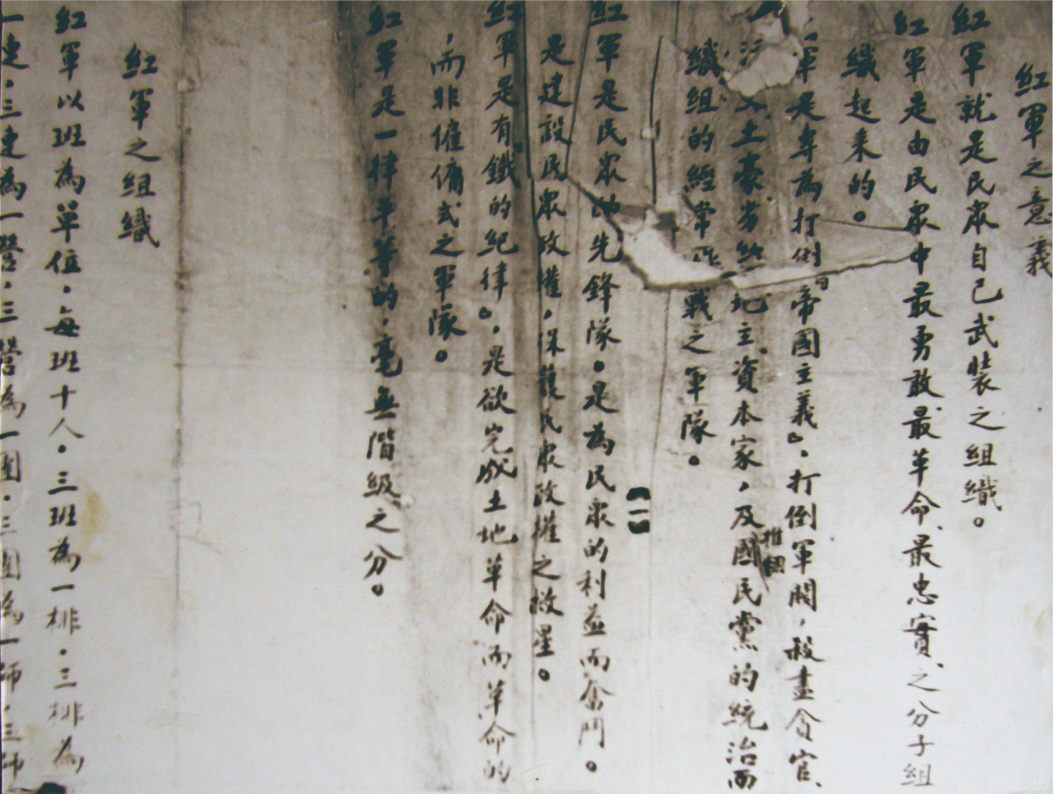 紅軍之意義
紅軍就是民眾自己武裝之組織。
紅軍是由民眾中最勇敢最革命、最忠實、之分子組
織起來的。
軍是專為打倒『帝國主義』，打倒軍閥，殺盡貪官、
土豪劣紳地主資本家，及推翻國民黨的統治而
織組的經常作戰之軍隊。
(二)
紅軍是民眾的先鋒隊。是為民眾的利益而奮鬥。
是建設民眾政權，保護民眾政權之救星。
紅軍是有『鐵的紀律』，是欲完成土地革命而革命的
，而非僱傭式之軍隊。
紅軍是一律平等的，毫無階級之分。
紅軍之組織
紅軍以班為單位，每班十人。三班為一排，三排為
一連，三連為一營，三營為一團，三團為一師，三師